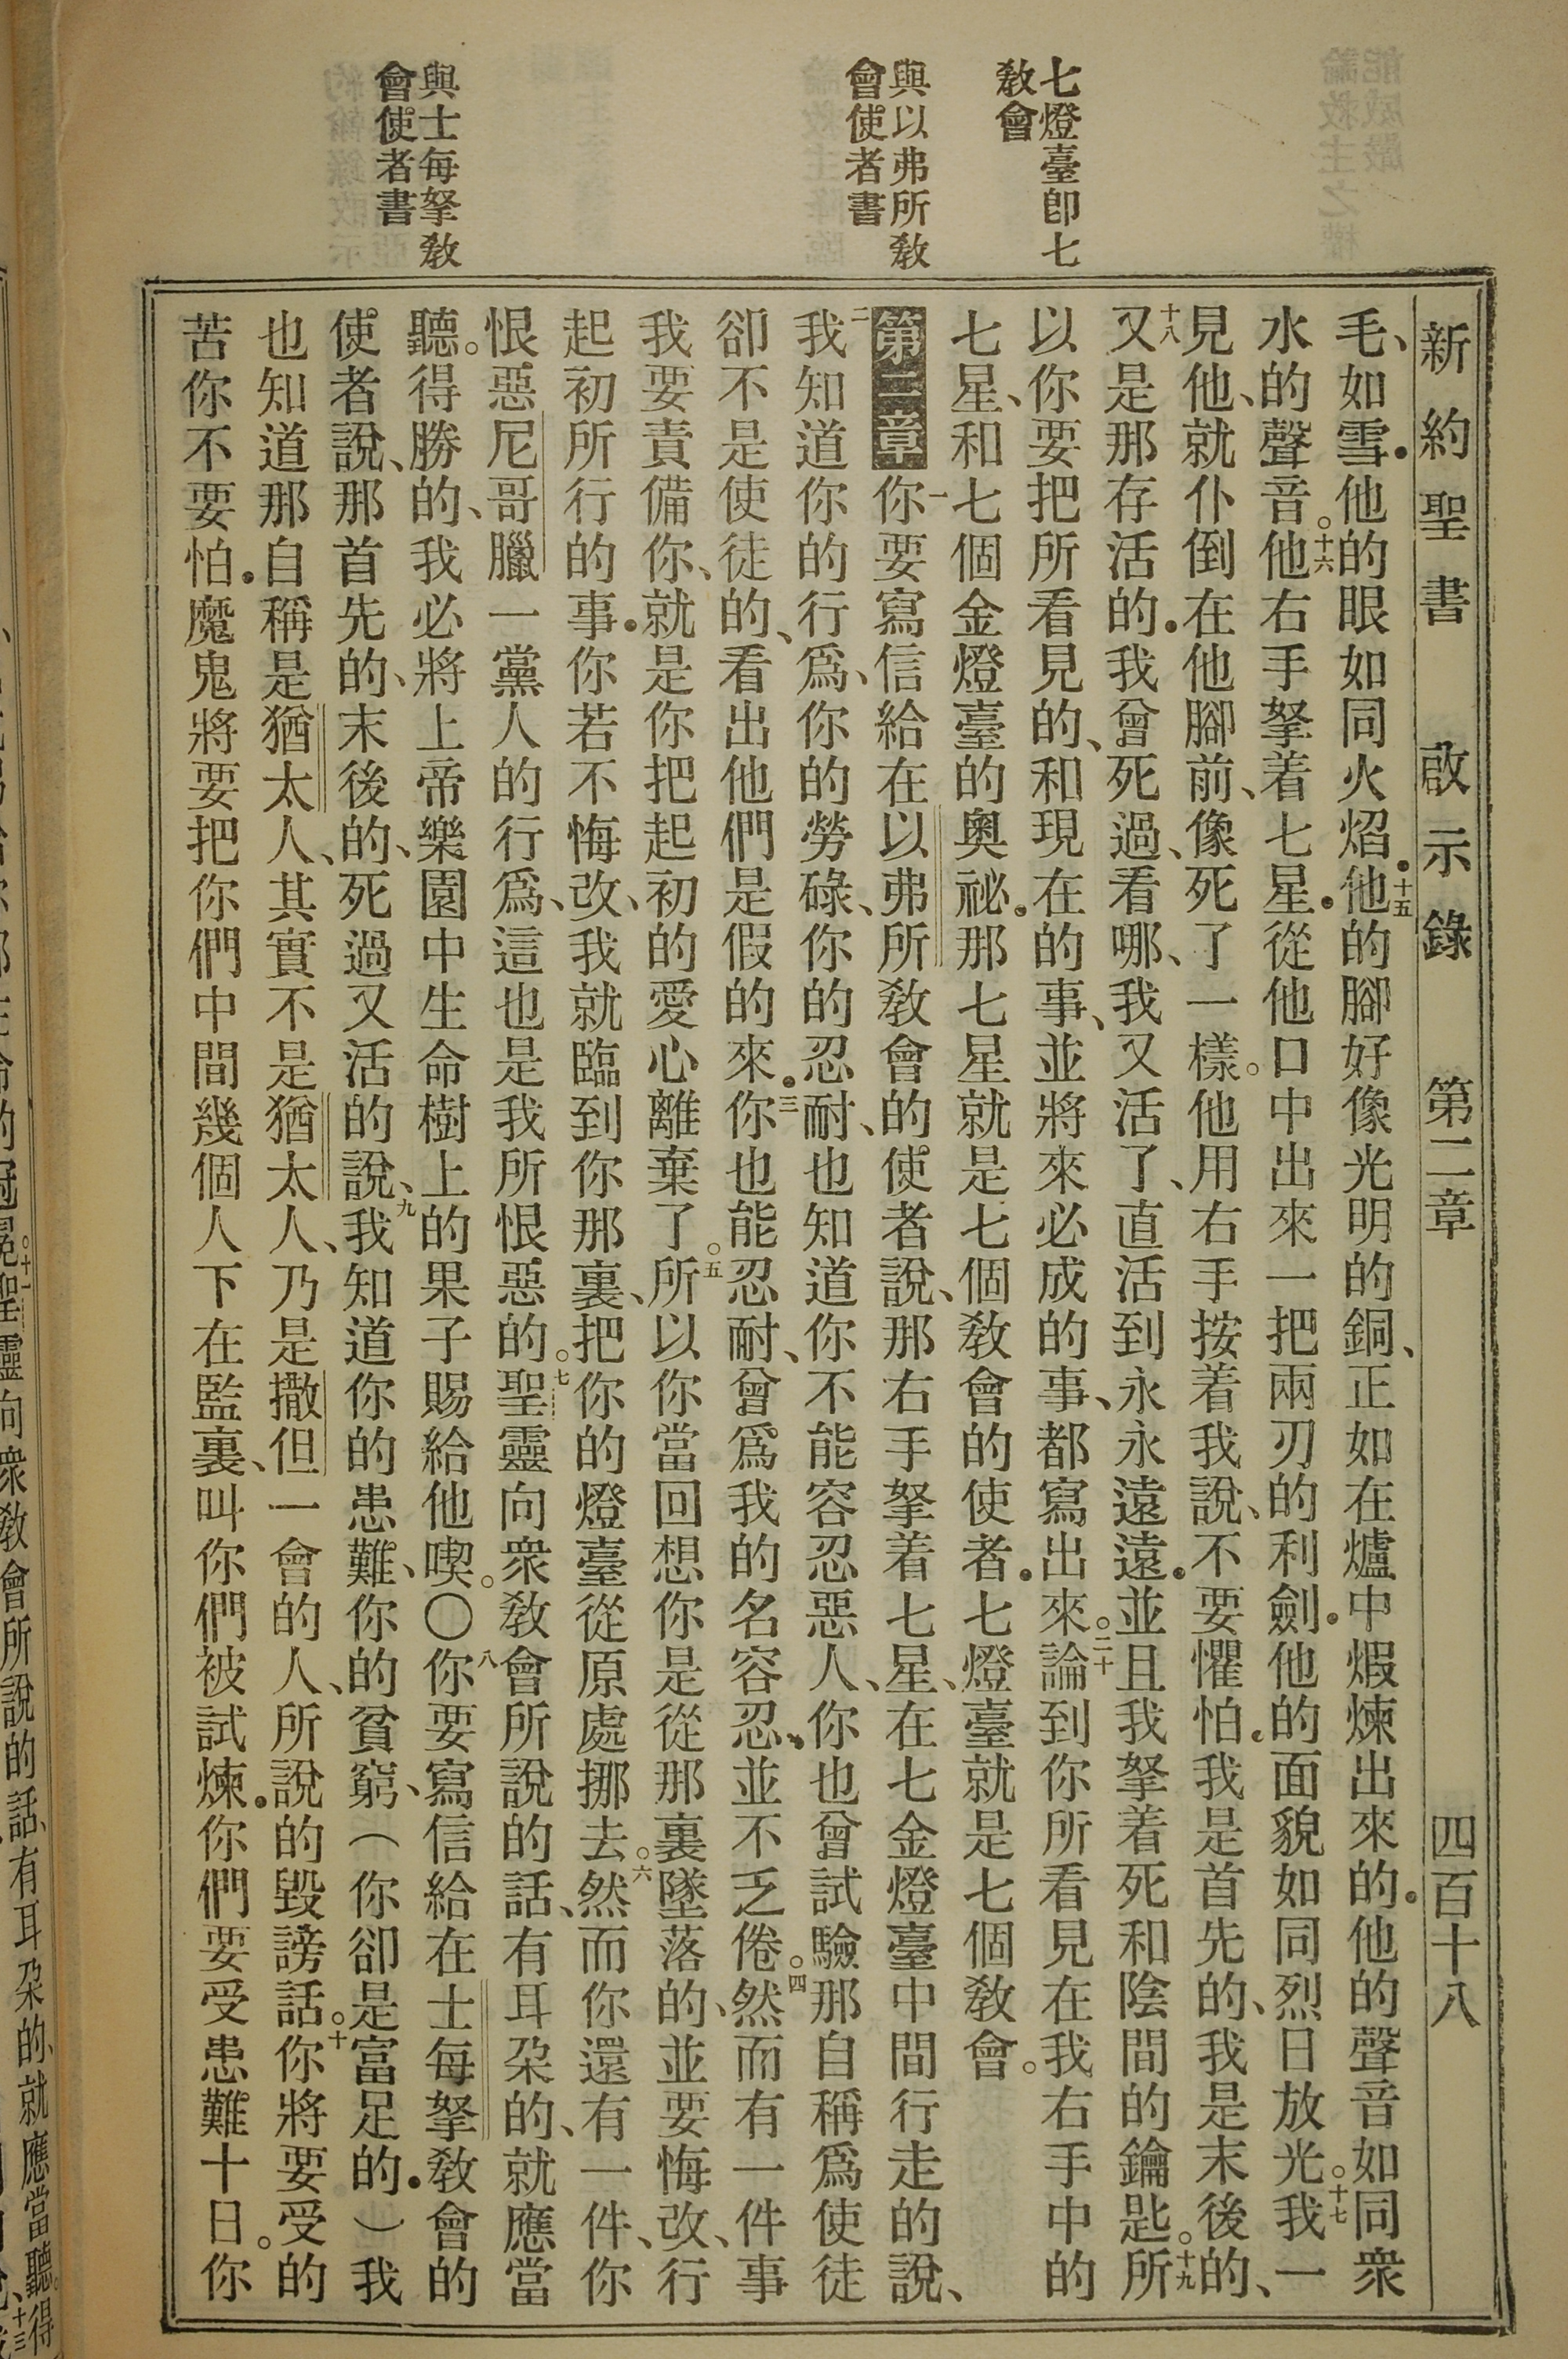 七燈臺卽七
敎會
與以弗所敎
會使者書
與士每拏敎
會使者書
新約聖書 啟示錄 第二章 四百十八
毛、如雪.他的眼如同火焰.十五他的腳好像光明的銅、正如在爐中煆煉出來的.他的聲音如同衆
水的聲音。十六他右手拏着七星.從他口中出來一把兩刃的利劍.他的面貌如同烈日放光。十七我一
見他、就仆倒在他腳前、像死了一樣。他用右手按着我說、不要懼怕.我是首先的、我是末後的、
十八又是那存活的.我曾死過、看哪、我又活了、直活到永永遠遠.並且我拏着死和陰間的鑰匙。十九所
以你要把所看見的、和現在的事、並將來必成的事、都寫出來。二十論到你所看見在我右手中的
七星、和七個金燈臺的奧祕.那七星就是七個敎會的使者.七燈臺就是七個敎會。
第二章 一你要寫信給在以弗所敎會的使者說、那右手拏着七星、在七金燈臺中間行走的說、
二我知道你的行爲、你的勞碌、你的忍耐、也知道你不能容忍惡人、你也曾試驗那自稱爲使徒
卻不是使徒的、看出他們是假的來.三你也能忍耐、曾爲我的名容忍.並不乏倦。四然而有一件事
我要責備你、就是你把起初的愛心離棄了。五所以你當回想你是從那裏墜落的、並要悔改、行
起初所行的事.你若不悔改、我就臨到你那裏、把你的燈臺從原處挪去。六然而你還有一件、你
恨惡尼哥臘一黨人的行爲、這也是我所恨惡的。七聖靈向衆敎會所說的話、有耳朶的、就應當
聽。得勝的、我必將上帝樂園中生命樹上的果子賜給他喫。〇八你要寫信給在士每拏敎會的
使者說、那首先的、末後的、死過又活的說、九我知道你的患難、你的貧窮、（你卻是富足的.）我
也知道那自稱是猶太人、其實不是猶太人、乃是撒但一會的人、所說的毀謗話。十你將要受的
苦你不要怕.魔鬼將要把你們中間幾個人下在監裏、叫你們被試煉.你們要受患難十日。你
冠冕。十一聖靈向衆敎會所說的話、有耳朶的、就應當聽。得